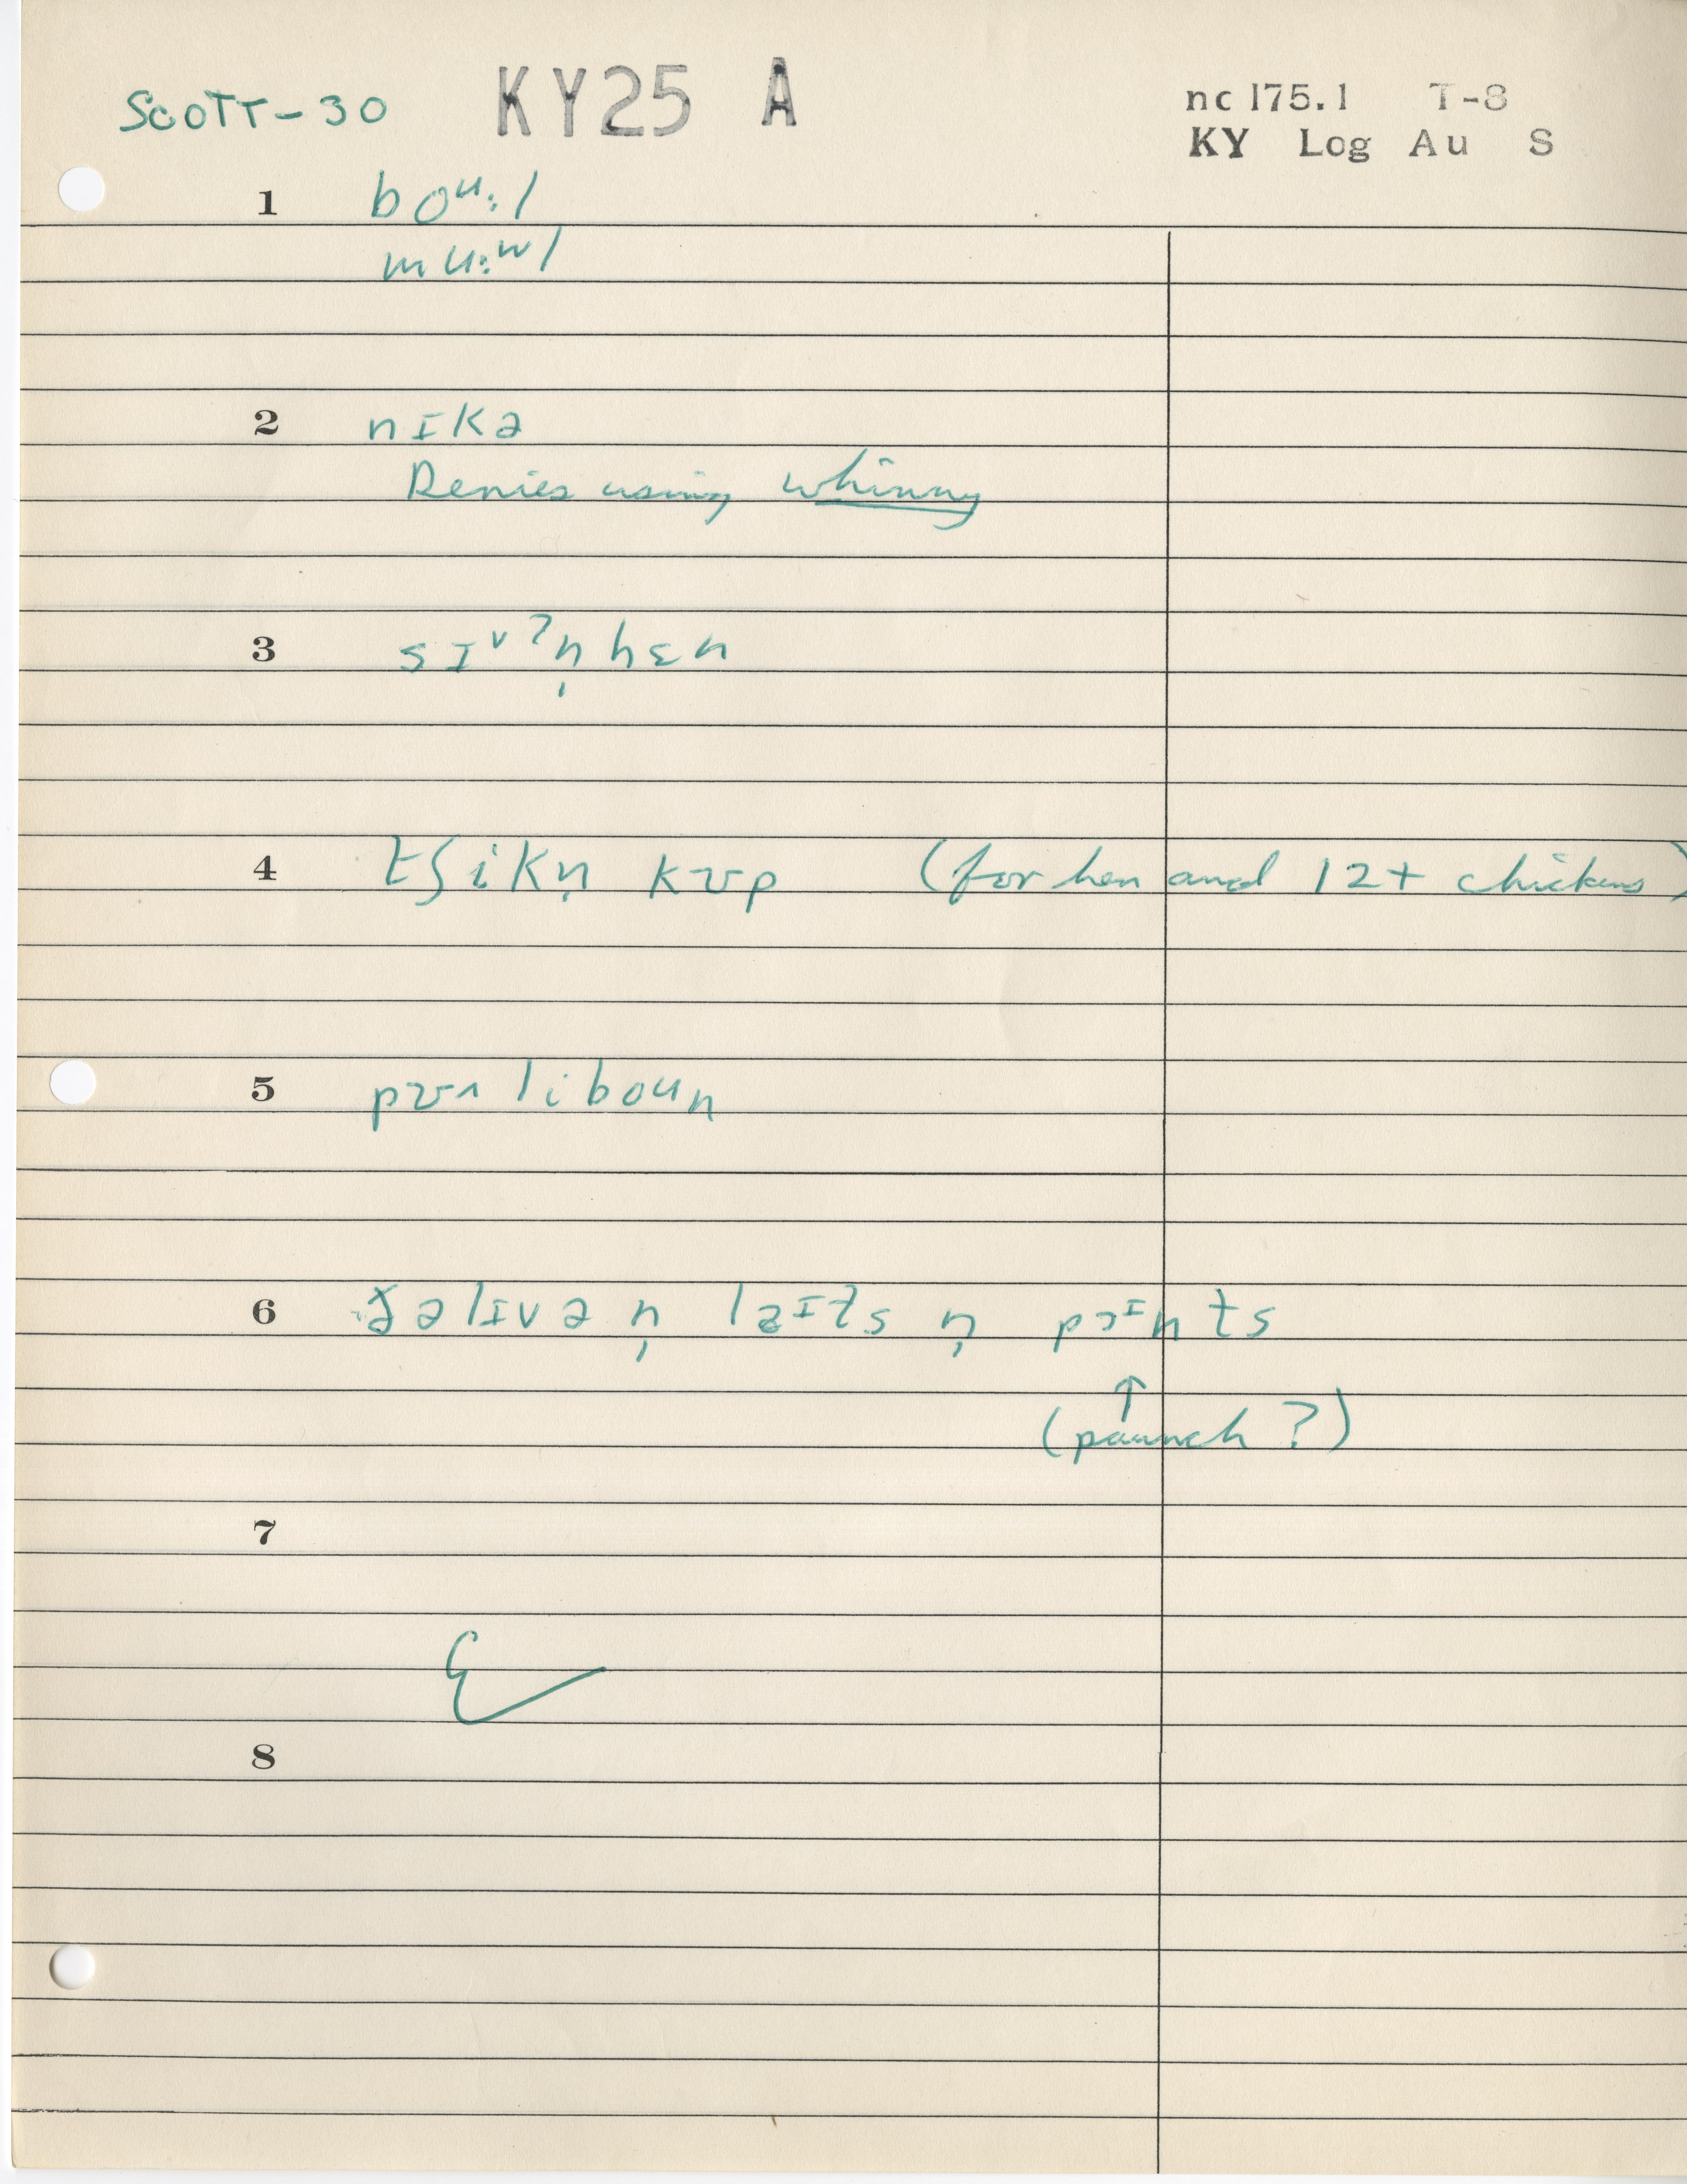 SCOTT-30 KY25 A nc 175.1 T-8
KY Log Au S
1 boᵘ·l
mu:ʷl
2 nɪkə
Denies using whinny
3 sɪᵛˀn̩hɛn
4 tʃikn̩ kʊp (for hen and 12+ chickens)
5 pʊʌliboun
6 ðə lɪvə n̩ laɪts n̩ pɔɪnts
↑
(paunch ?)
7
8